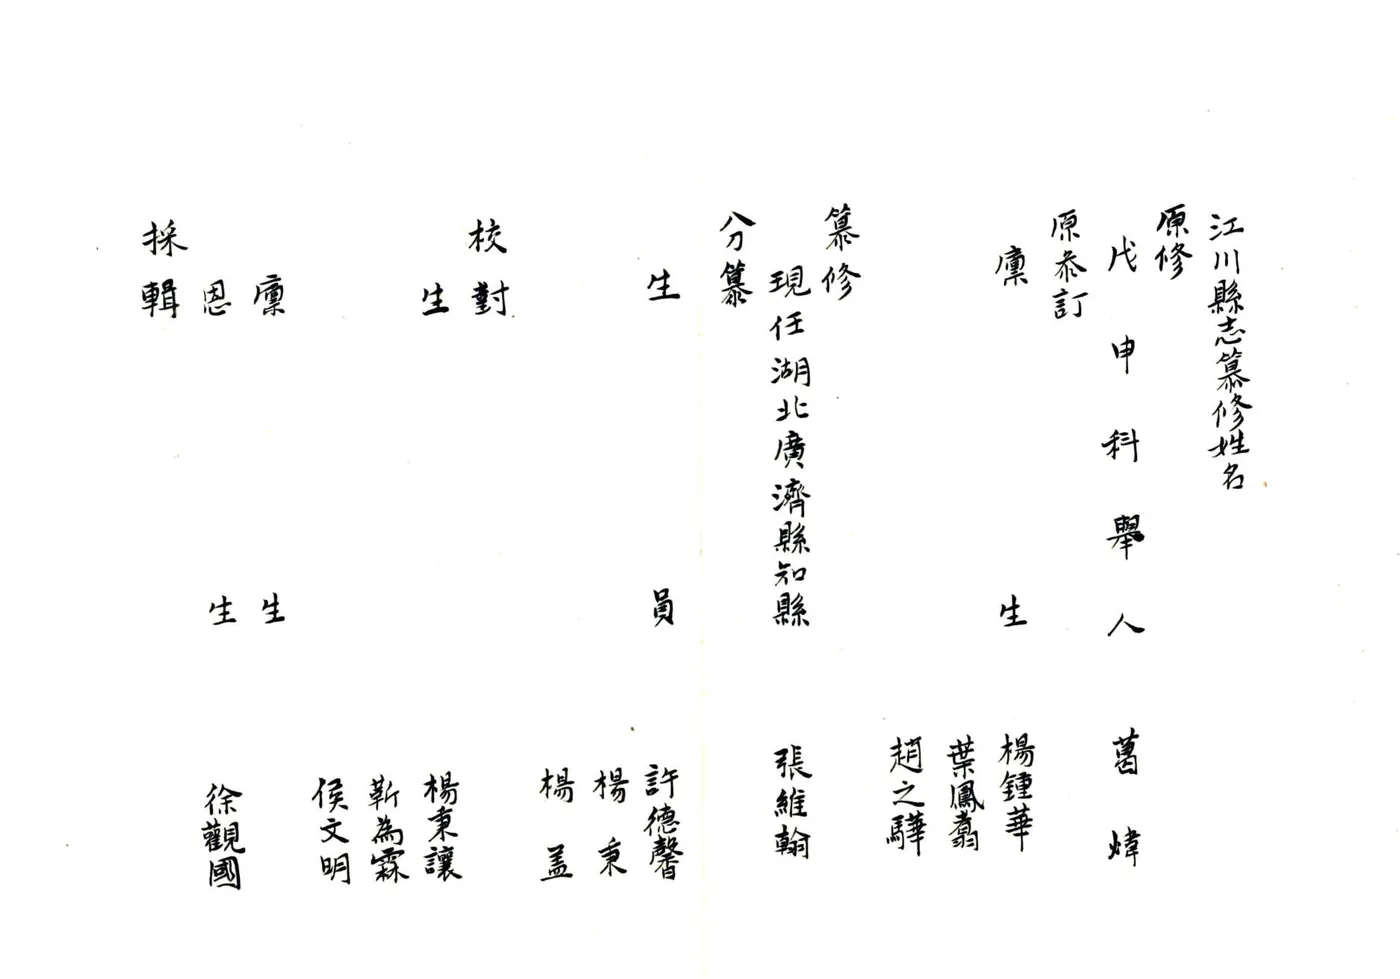 江川縣志纂修姓名
原修
戊申科舉人 葛煒
原叅訂
廩生 楊鍾華
葉鳳翥
趙之驊
纂修
現任湖北廣濟縣知縣 張維翰
分纂
生員 許德馨
楊秉
楊盖
校對
生 楊秉讓
靳為霖
侯文明
廩生
恩生 徐觀國
採輯